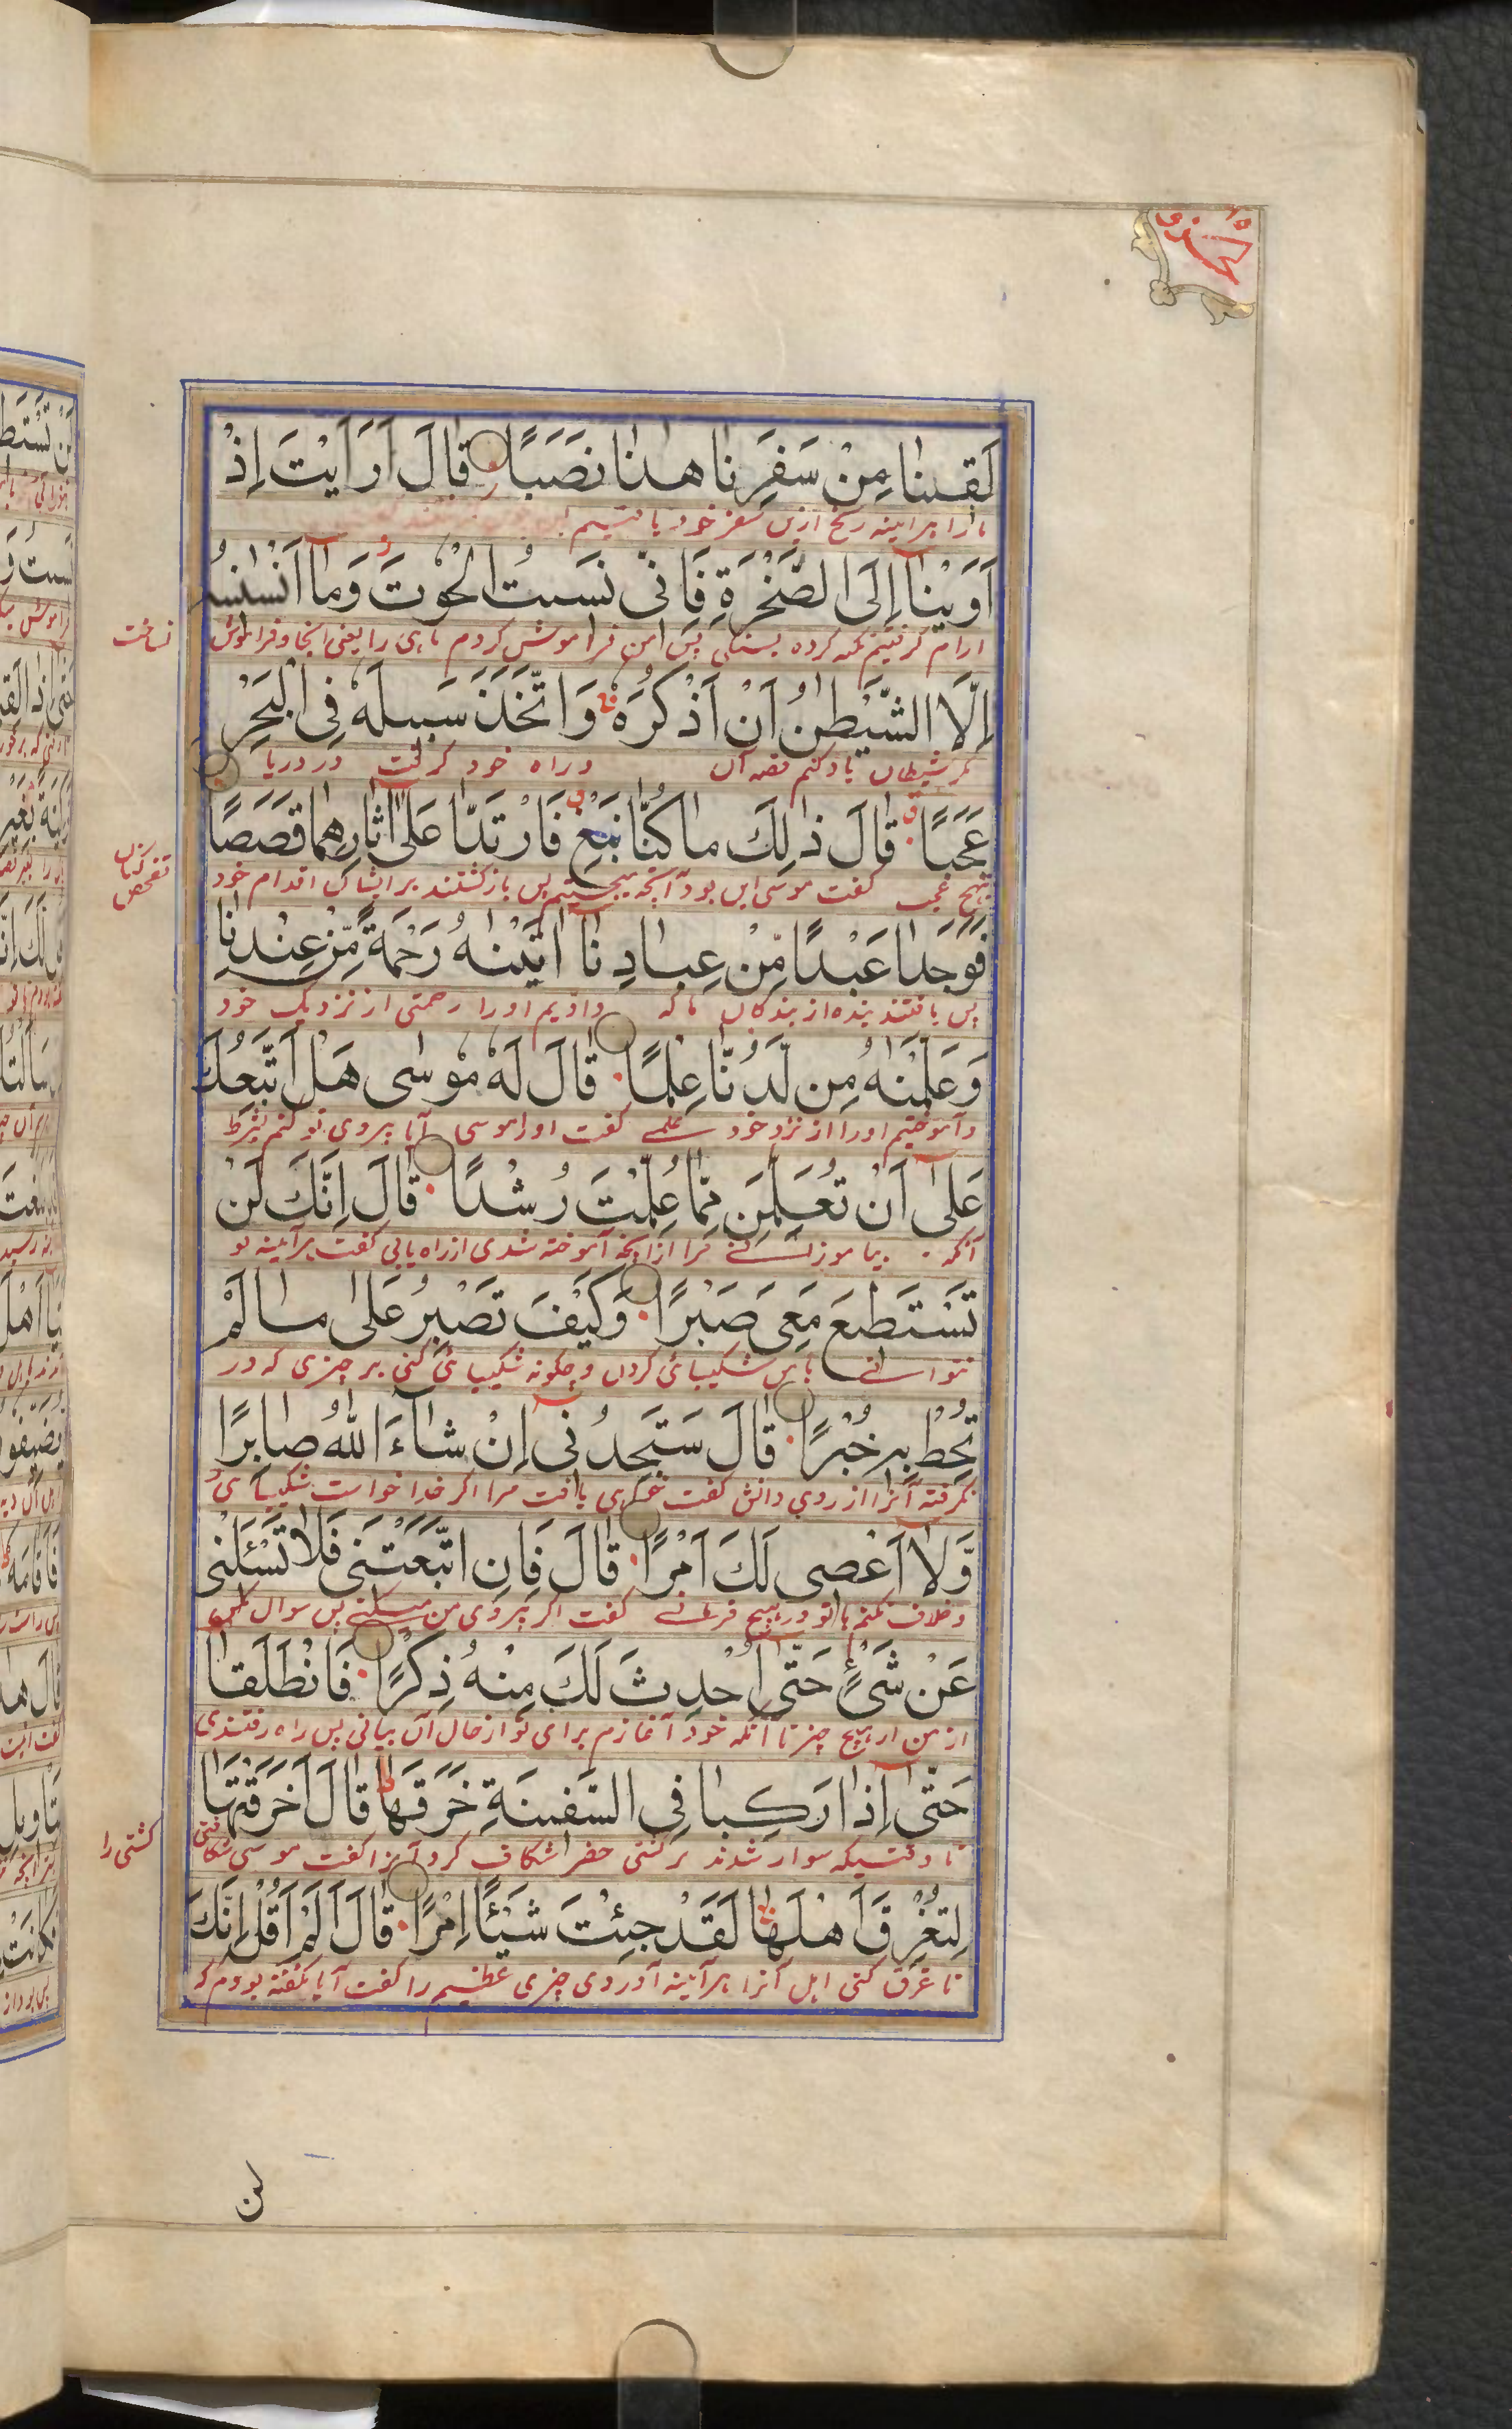 لَقِينَا مِنْ سَفَرِنَا هٰذَا نَصَبًا قَالَ اَرَاَيْتَ اِذْ
ما را هرآینه رنج ازین سفر خود یافتیم
اَوَيْنَا اِلَى الصَّخْرَةِ فَاِنِّى نَسِيتُ الْحُوتَ وَمَا اَنْسٰىنِيهُ
ارام گرفتیم تکیه کرده بسنگی پس من فراموش کردم ماهی را یعنی آنجا و فراموش
نساخت
اِلَّا الشَّيْطٰنُ اَنْ اَذْكُرَهٗ وَاتَّخَذَ سَبِيلَهٗ فِى الْبَحْرِ
مگر شیطان یاد کنم قصه آن و راه خود گرفت در دریا
عَجَبًا قَالَ ذٰلِكَ مَا كُنَّا نَبْغِ فَارْتَدَّا عَلٰٓى اٰثَارِهِمَا قَصَصًا
عجب گفت موسی این بود آنچه میجستیم پس بازگشتند بر اقدام خود
تفحص کنان
فَوَجَدَا عَبْدًا مِّنْ عِبَادِنَا اٰتَيْنٰهُ رَحْمَةً مِّنْ عِنْدِنَا
پس یافتند بنده از بندگان ما که دادیم او را رحمتی از نزدیک خود
وَعَلَّمْنٰهُ مِن لَّدُنَّا عِلْمًا قَالَ لَهٗ مُوسٰى هَلْ اَتَّبِعُكَ
و آموختیم او را از نزد خود علمی گفت او را موسی آیا پیروی تو کنم بشرط
عَلٰٓى اَنْ تُعَلِّمَنِ مِمَّا عُلِّمْتَ رُشْدًا قَالَ اِنَّكَ لَنْ
آنکه بیاموزانی مرا ازانچه آموخته شدی از راه یابی گفت هرآینه تو
تَسْتَطِيعَ مَعِىَ صَبْرًا وَكَيْفَ تَصْبِرُ عَلٰى مَا لَمْ
نتوانی با من شکیبائی کردن و چگونه شکیبائی کنی بر چیزی که در
تُحِطْ بِهٖ خُبْرًا قَالَ سَتَجِدُنِىٓ اِنْ شَآءَ اللّٰهُ صَابِرًا
نگرفته آنرا از روی دانش گفت خواهی یافت مرا اگر خدا خواست شکیبای
وَّلَآ اَعْصِى لَكَ اَمْرًا قَالَ فَاِنِ اتَّبَعْتَنِى فَلَا تَسْئَلْنِى
و خلاف نکنم با تو در هیچ فرمانی گفت اگر پیروی من میکنی پس سوال مکن
عَنْ شَىْءٍ حَتّٰٓى اُحْدِثَ لَكَ مِنْهُ ذِكْرًا فَانْطَلَقَا
از من از هیچ چیز تا آنکه خود آغازم برای تو از حال آن بیانی پس راه رفتندی
حَتّٰٓى اِذَا رَكِبَا فِى السَّفِينَةِ خَرَقَهَا قَالَ اَخَرَقْتَهَا
تا وقتیکه سوار شدند بر کشتی خضر شکاف کرد آنرا گفت موسی شکافتی
کشتی را
لِتُغْرِقَ اَهْلَهَا لَقَدْ جِئْتَ شَيْئًا اِمْرًا قَالَ اَلَمْ اَقُلْ اِنَّكَ
تا غرق کنی اهل آنرا هرآینه آوردی چیزی عظیم را گفت آیا نگفته بودم که
لن